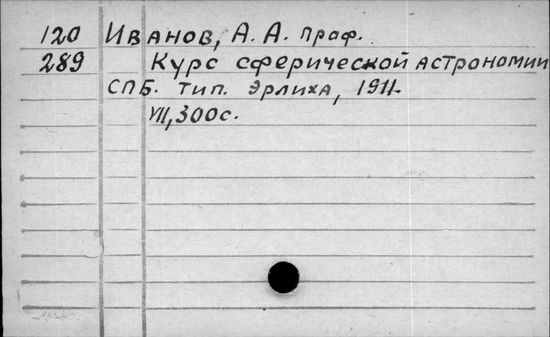 120 Иванов, А. А. проф.
289 Курс сферической астрономии
СПБ. тип. Эрлиха, 1911.
VII, 300 с.